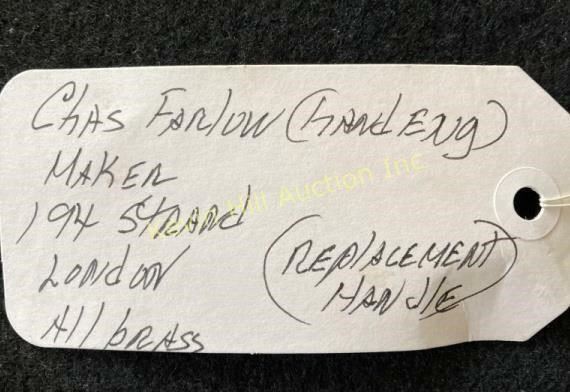 Chas Farlow (hand Eng)
Maker
194 Strand
London
All brass
(Replacement
Handle)
Hill Auction Inc